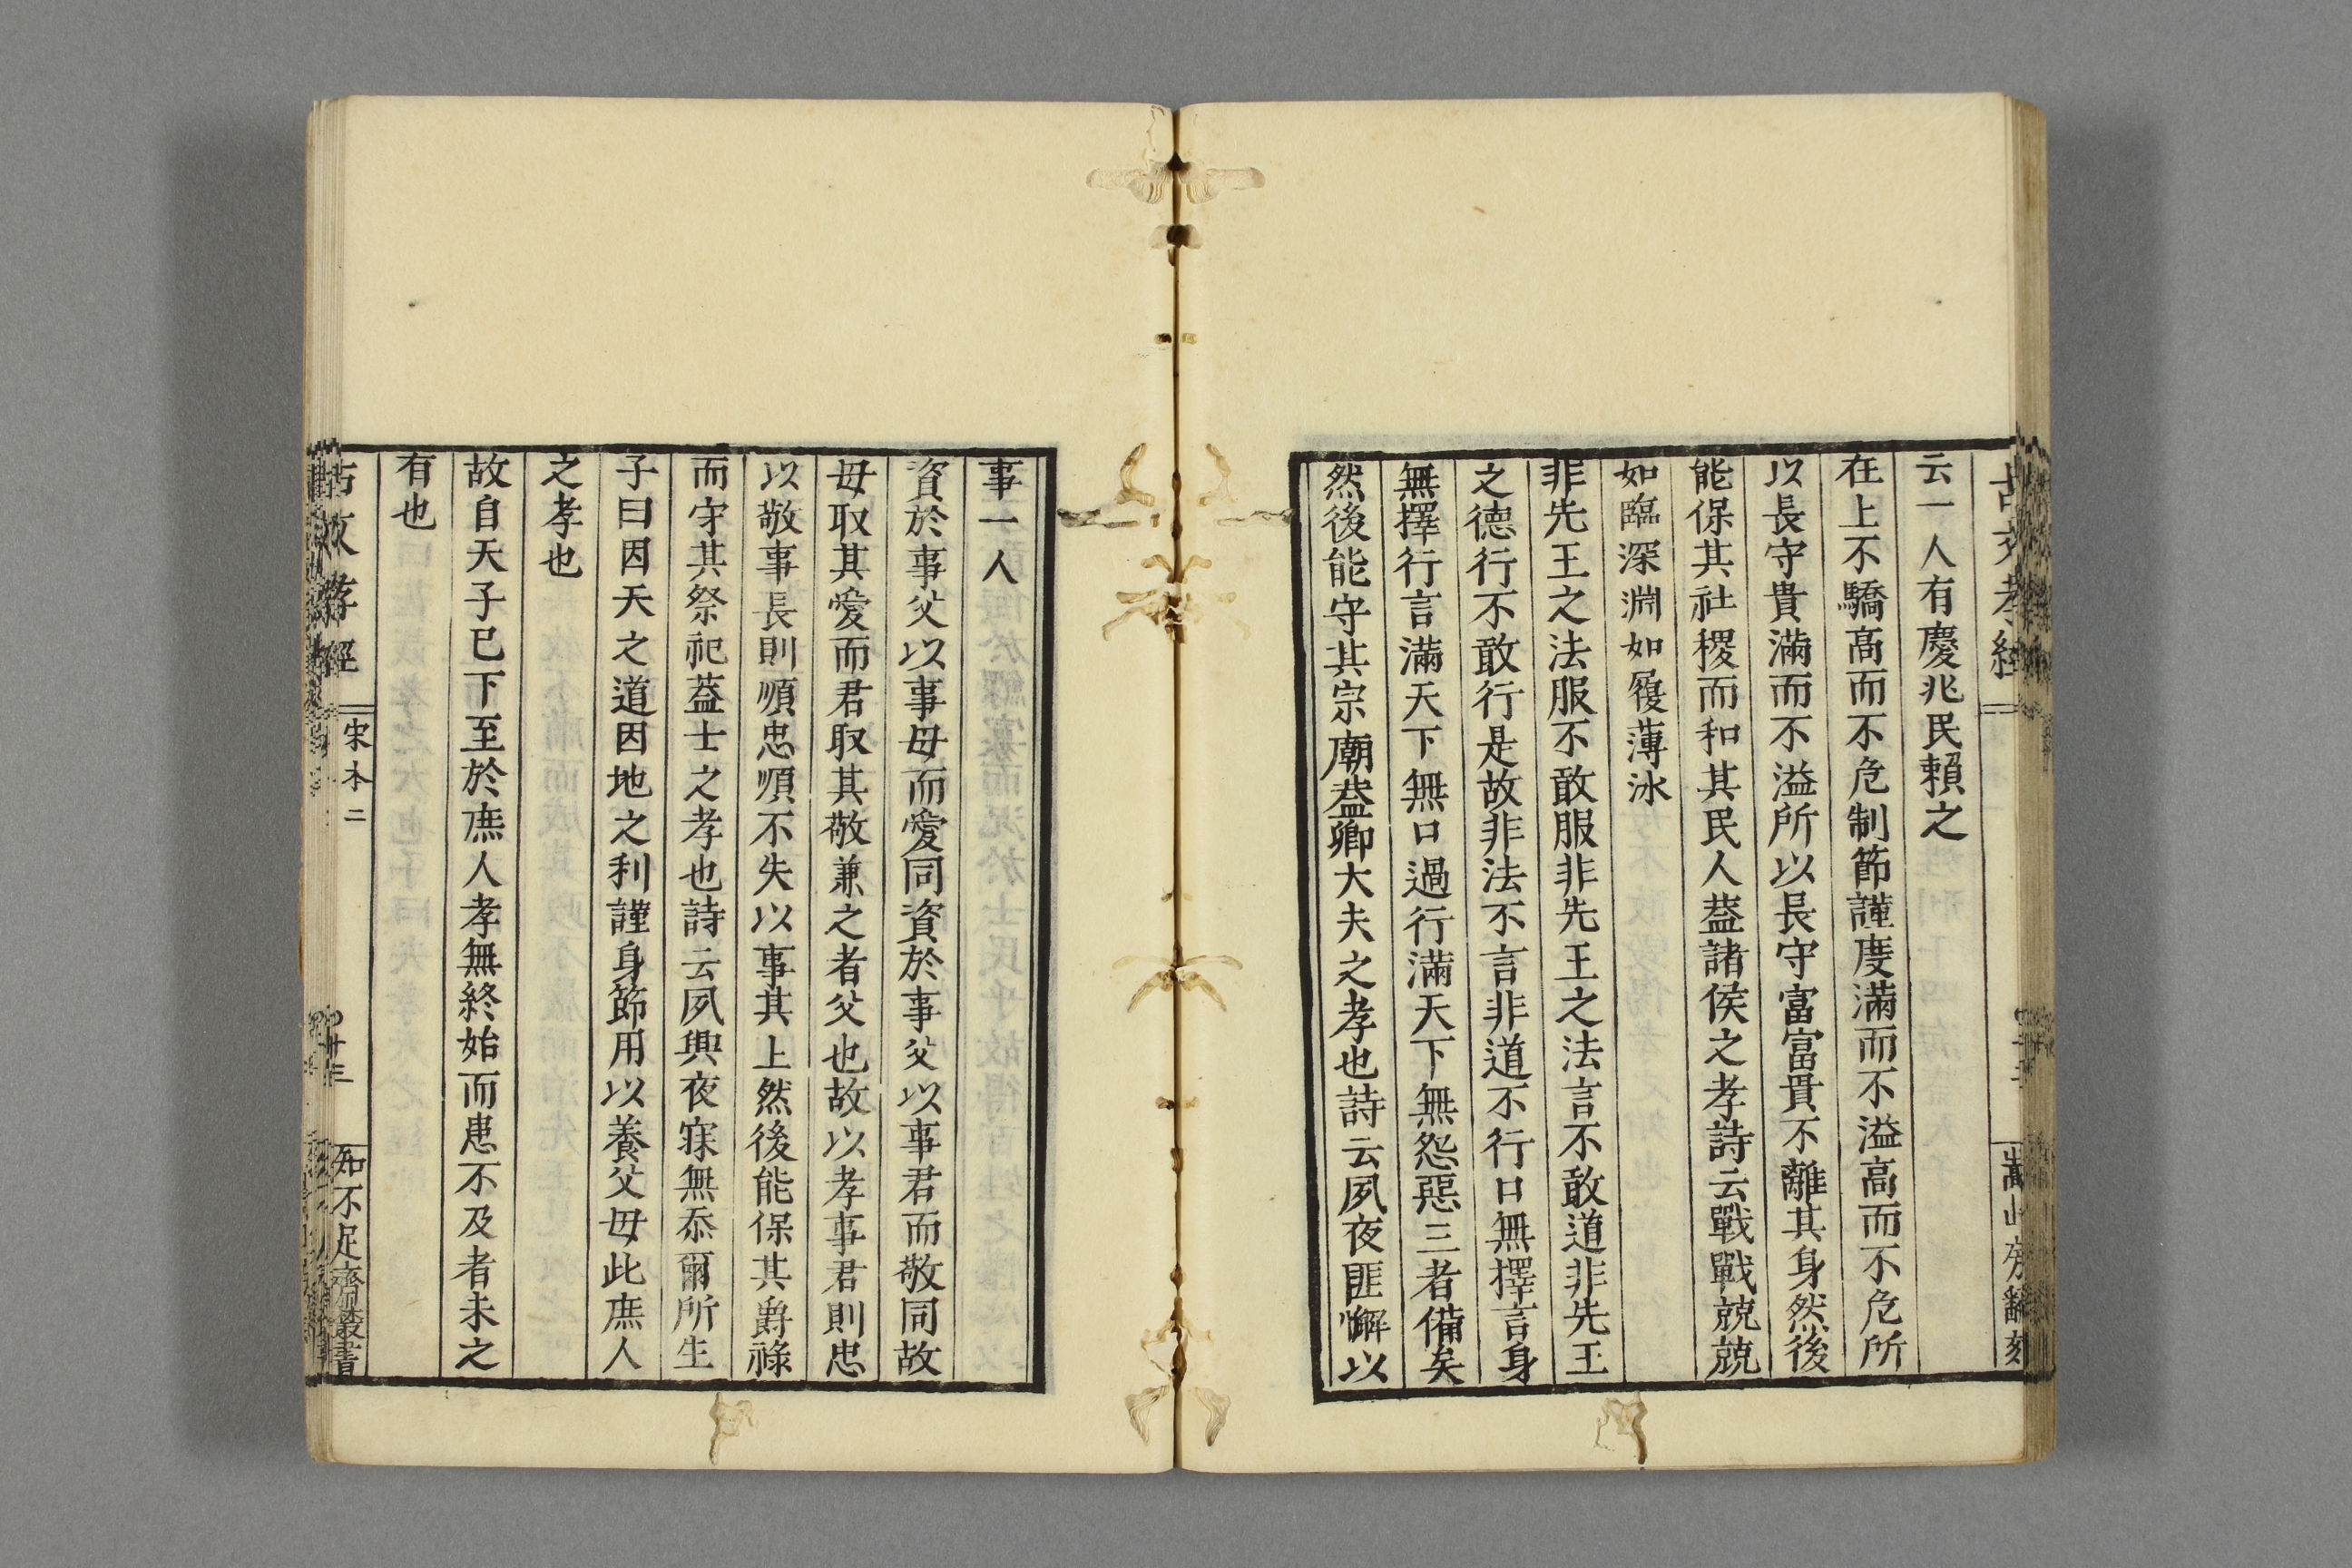 古文孝經
嵩山房翻刻
云一人有慶兆民賴之
在上不驕高而不危制節謹度滿而不溢高而不危所
以長守貴滿而不溢所以長守富富貴不離其身然後
能保其社稷而和其民人葢諸侯之孝詩云戰戰兢兢
如臨深淵如履薄氷
非先王之法服不敢服非先王之法言不敢道非先王
之德行不敢行是故非法不言非道不行口無擇言身
無擇行言滿天下無口過行滿天下無怨惡三者備矣
然後能守其宗廟葢卿大夫之孝也詩云夙夜匪懈以
事一人
資於事父以事母而愛同資於事父以事君而敬同故
母取其愛而君取其敬兼之者父也故以孝事君則忠
以敬事長則順忠順不失以事其上然後能保其爵祿
而守其祭祀葢士之孝也詩云夙興夜寐無忝爾所生
子曰因天之道因地之利謹身節用以養父母此庶人
之孝也
故自天子已下至於庶人孝無終始而患不及者未之
有也
古文孝經
宋本二
卅三
知不足齋叢書